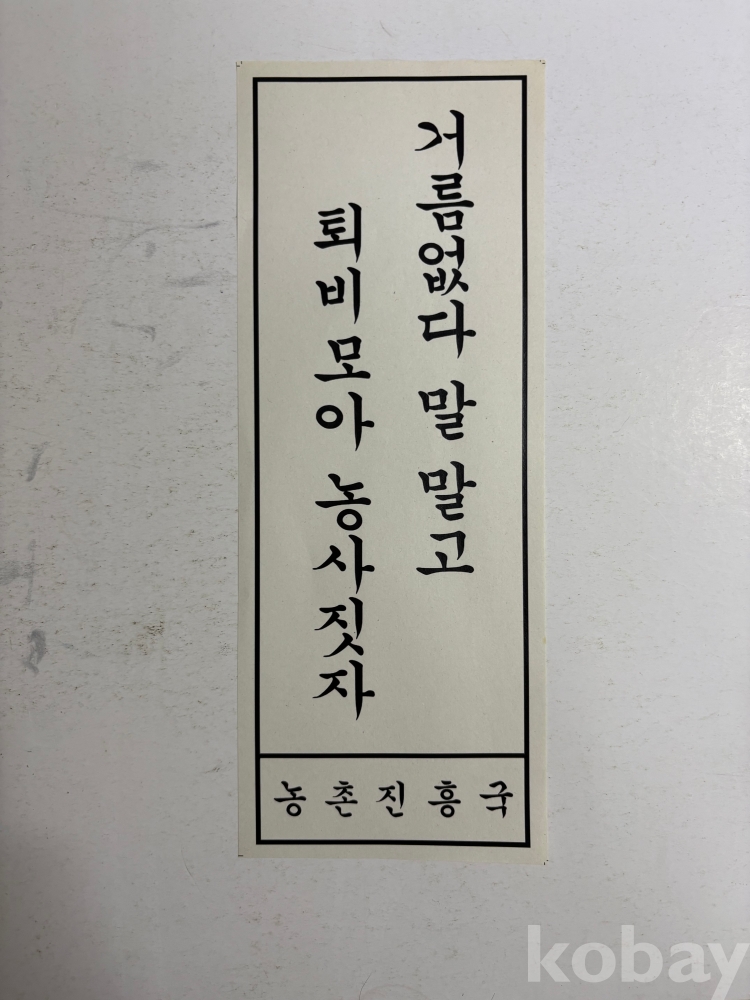 거름없다 말 말고
퇴비모아 농사짓자
농촌진흥국
kobay